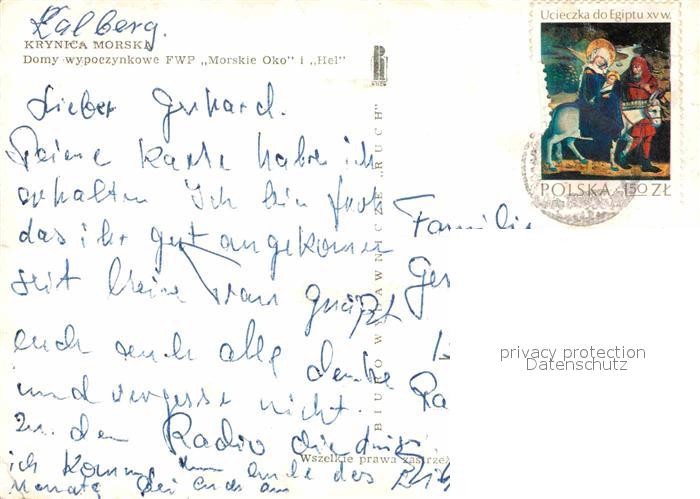 Kalberg.
KRYNICA MORSKA
Domy wypoczynkowe FWP „Morskie Oko" i „Hel"
Ucieczka do Egiptu XV w.
POLSKA 1,50 ZŁ
Lieber Gerhard.
Deine Karte habe ich
erhalten Ich bin froh
das ihr gut angekomen
seit Meine Frau grüßt
euch auch alle
und vergesse nicht.
zu den Radio
ich komme ende des
Monats bei euch an
BIURO WYDAWNICZE „RUCH"
Familie
Ger
Ra
Wszelkie prawa zastrzeż
privacy protection
Datenschutz